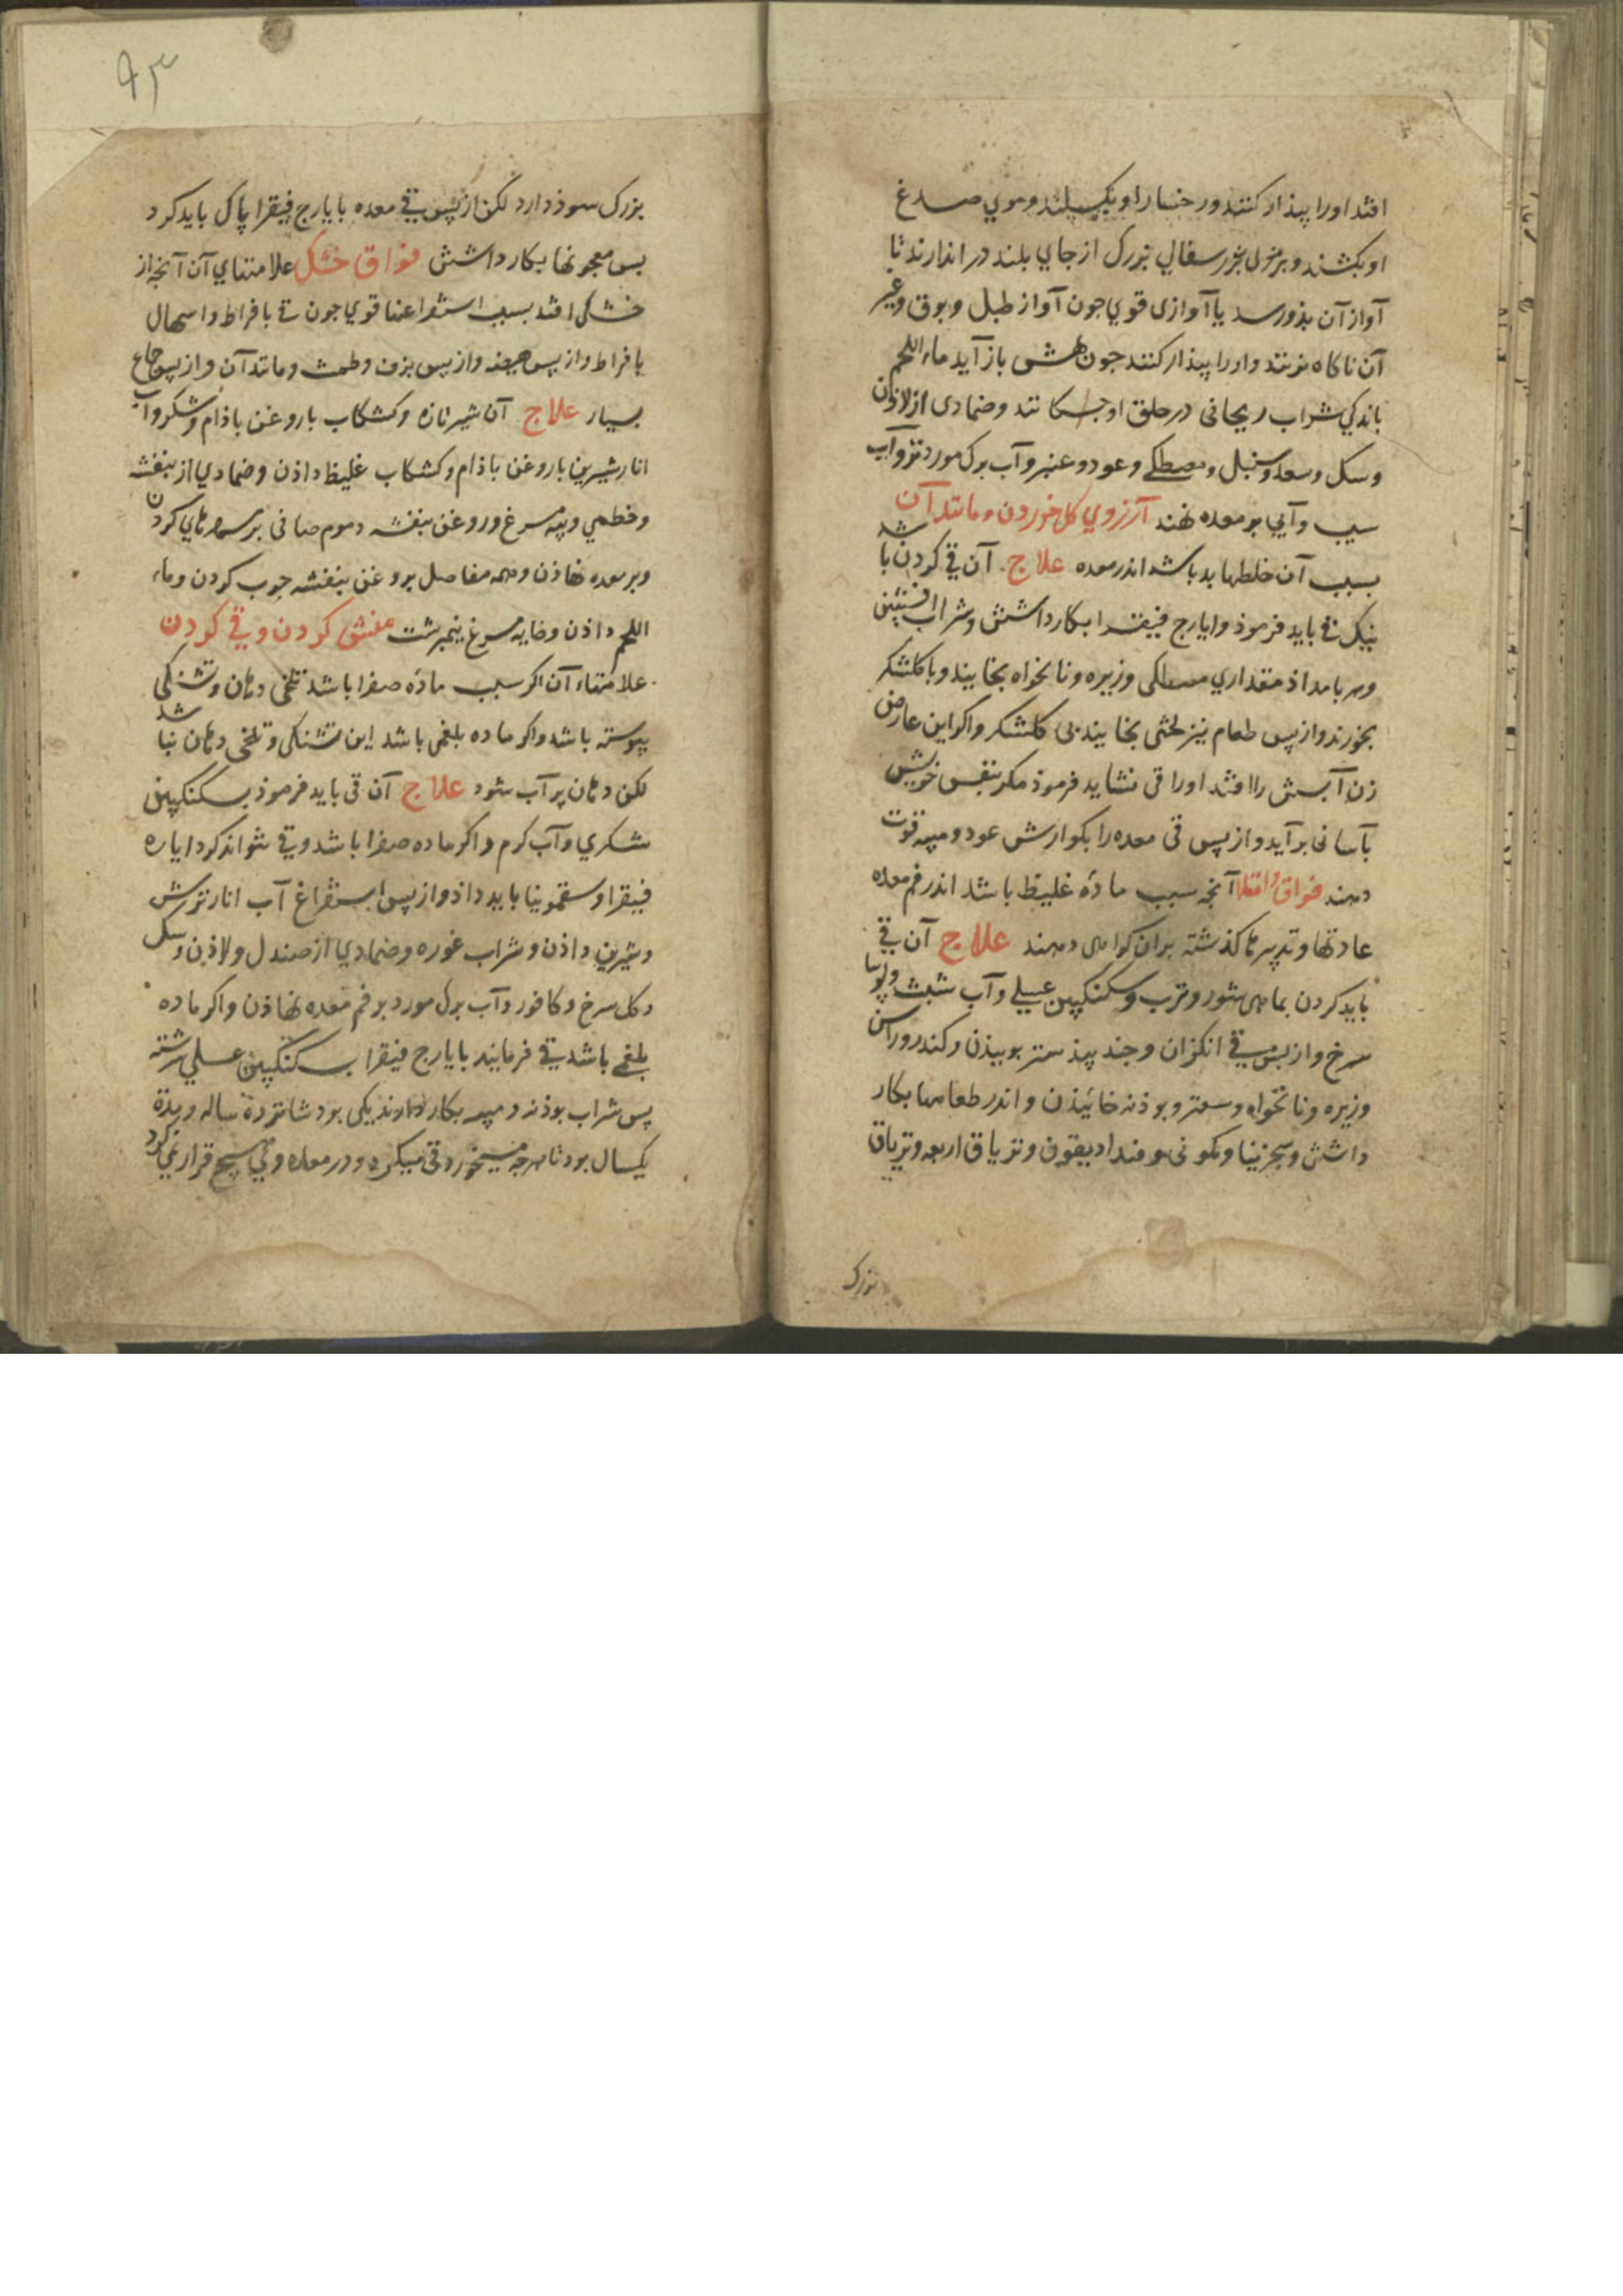 افتد اورا بیذار کنند و رخسار او بکسلند و موي صدغ
او بکشند و بزمین بر سفالي بزرک از جاي بلند در اندازند تا
آواز آن بذو رسد یا آوازی قوي جون آواز طبل و بوق و غیر
آن ناکاه بزنند و اورا بیذار کنند جون بهش باز آید ماء اللحم
باندکي شراب ریحانی در حلق او جکانند و ضمادی از لاذن
و سک و سعد و سنبل و مصطکي و عود و عنبر و آب برک مورد تر و آب
سیب و آبي بر معده نهند آرزوي کل خوردن و مانند آن
بسبب آن خلطهاء بد باشد اندر معده علاج آن قي کردن باشد
نیک قي باید فرموذ و ایارج فیقرا بکار داشتن و شراب افسنتین
و هر بامداذ مقداري مصطکی و زیره و نانخواه بخایند و با کلشکر
بخورند و از پس طعام نیز لختی بخایند بی کلشکر و اکر این عارض
زن آبستن را افتد اورا قی نشاید فرموذ مکر بنفس خویش
بآسانی بر آید و از پس قی معده را بکوارش عود و میبه قوت
دهند فواق امتلا آنجه سبب مادّه غلیظ باشد اندر فم معده
عادتها و تدبیرهاء کذشته بران کواهی دهند علاج آن قي
باید کردن بماهی شور و ترب و سکنکبین عسلي و آب شبت و لوبیا
سرخ و از پس قي انکزان و جند بیذستر بوییذن و کندر و راسن
و زیره و نانخواه و سعتر و بوذنه خائیذن و اندر طعامها بکار
داشتن و سجزینا و کمونی و فنداذیقون و تریاق اربعه و تریاق
بزرک
۹۳
بزرک سوذ دارد لکن از پس قي معده بایارج فیقرا پاک باید کرد
پس معجونها بکار داشتن فواق خشک علامتهاي آن آنجه از
خشکی افتد بسبب استفراغها قوي جون قي بافراط و اسهال
بافراط و از پس هیضه و از پس نزف و طمث و مانند آن و از پس جماع
بسیار علاج آن شیر تازه و کشکاب با روغن باذام و شکر و آب
انار شیرین با روغن باذام و کشکاب غلیظ داذن و ضمادي از بنفشه
و خطمي و پیه مرغ و روغن بنفشه و موم صافی بر مهرهاي کردن
و بر معده نهاذن و همه مفاصل بروغن بنفشه جرب کردن و ماء
اللحم داذن و خایه مرغ نیمبرشت منش کردن و قي کردن
علامتهاء آن اکر سبب مادّه صفرا باشد تلخی دهان و تشنکي
پیوسته باشد و اکر ماده بلغمی باشد این تشنکی و تلخی دهان نباشد
لکن دهان پر آب شود علاج آن قی باید فرموذ بسکنکبین
شکري و آب کرم و اکر ماده صفرا باشد و قي نتواند کرد ایاره
فیقرا و سقمونیا باید داذ و از پس استفراغ آب انار ترش
و شیرین داذن و شراب غوره و ضمادي از صندل و لاذن و سک
و کل سرخ و کافور و آب برک مورد بر فم معده نهاذن و اکر ماده
بلغمي باشد قي فرمایند بایارج فیقرا بسکنکبین عسلي سرشته
پس شراب بوذنه و میبه بکار دارند یکی بود شانزده ساله و مدّة
یکسال بود تا هرجه میخورد قی میکرد و در معده وي هیج قرار نمي کرد